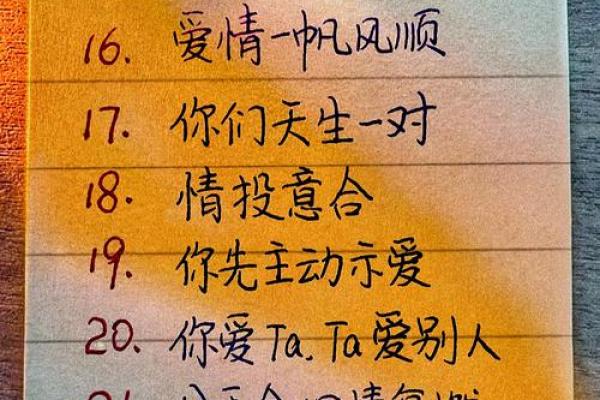 16. 爱情一帆风顺
17. 你们天生一对
18. 情投意合
19. 你先主动示爱
20. 你爱Ta.Ta爱别人